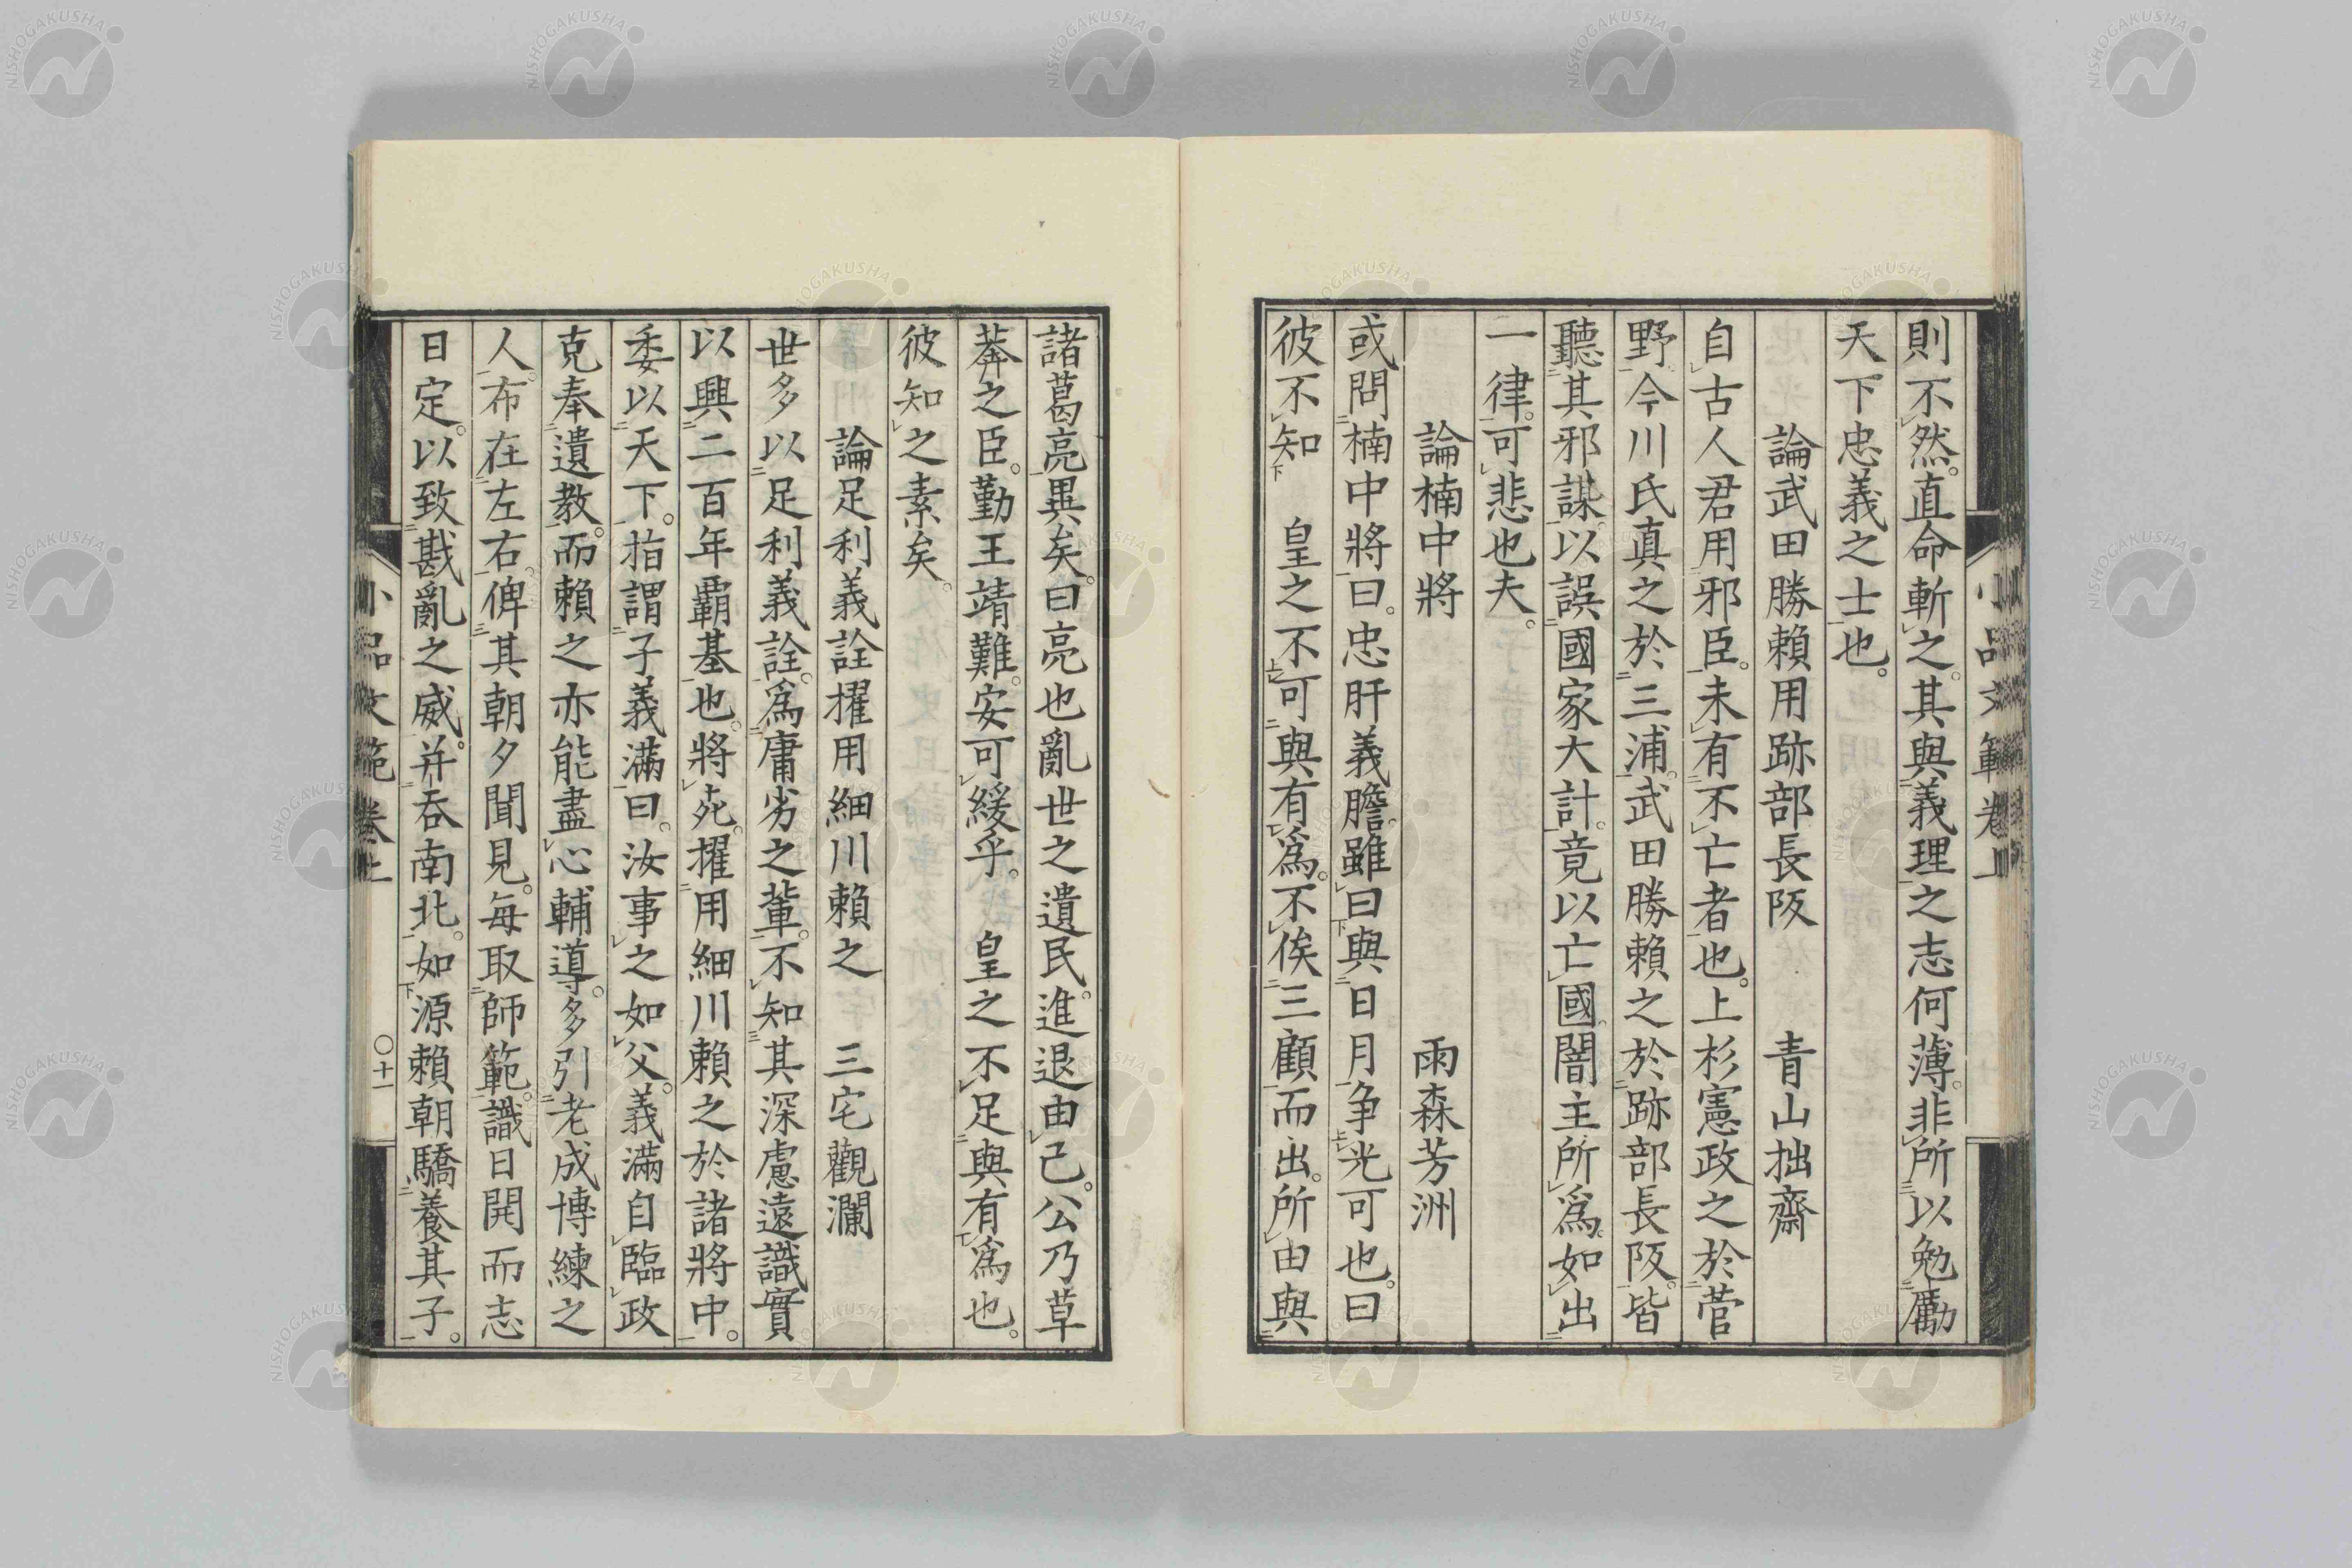 則不然。直命斬之。其與義理之志何薄。非所以勉勵
天下忠義之士也。
論武田勝賴用跡部長阪　青山拙齋
自古人君用邪臣。未有不亡者也。上杉憲政之於菅
野。今川氏真之於三浦。武田勝賴之於跡部長阪。皆
聽其邪謀。以誤國家大計。竟以亡國。闇主所爲。如出
一律。可悲也夫。
論楠中將　雨森芳洲
或問楠中將。曰。忠肝義膽。雖曰與日月争光可也。曰
彼不知　皇之不可與有爲。不俟三顧而出。所由與
諸葛亮異矣。曰亮也亂世之遺民。進退由己。公乃草
莽之臣。勤王靖難。安可緩乎。　皇之不足與有爲也。
彼知之素矣。
論足利義詮擢用細川賴之　三宅觀瀾
世多以足利義詮。爲庸劣之輩。不知其深慮遠識實
以興二百年覇基也。將死。擢用細川賴之於諸將中。
委以天下。指謂子義滿曰。汝事之如父。義滿自臨政
克奉遺教。而賴之亦能盡心輔導。多引老成博練之
人。布在左右。俾其朝夕聞見。每取師範。識日開而志
日定。以致戡亂之威。并吞南北。如源賴朝驕養其子。
小品文範卷上　〇十一
NISHOGAKUSHA